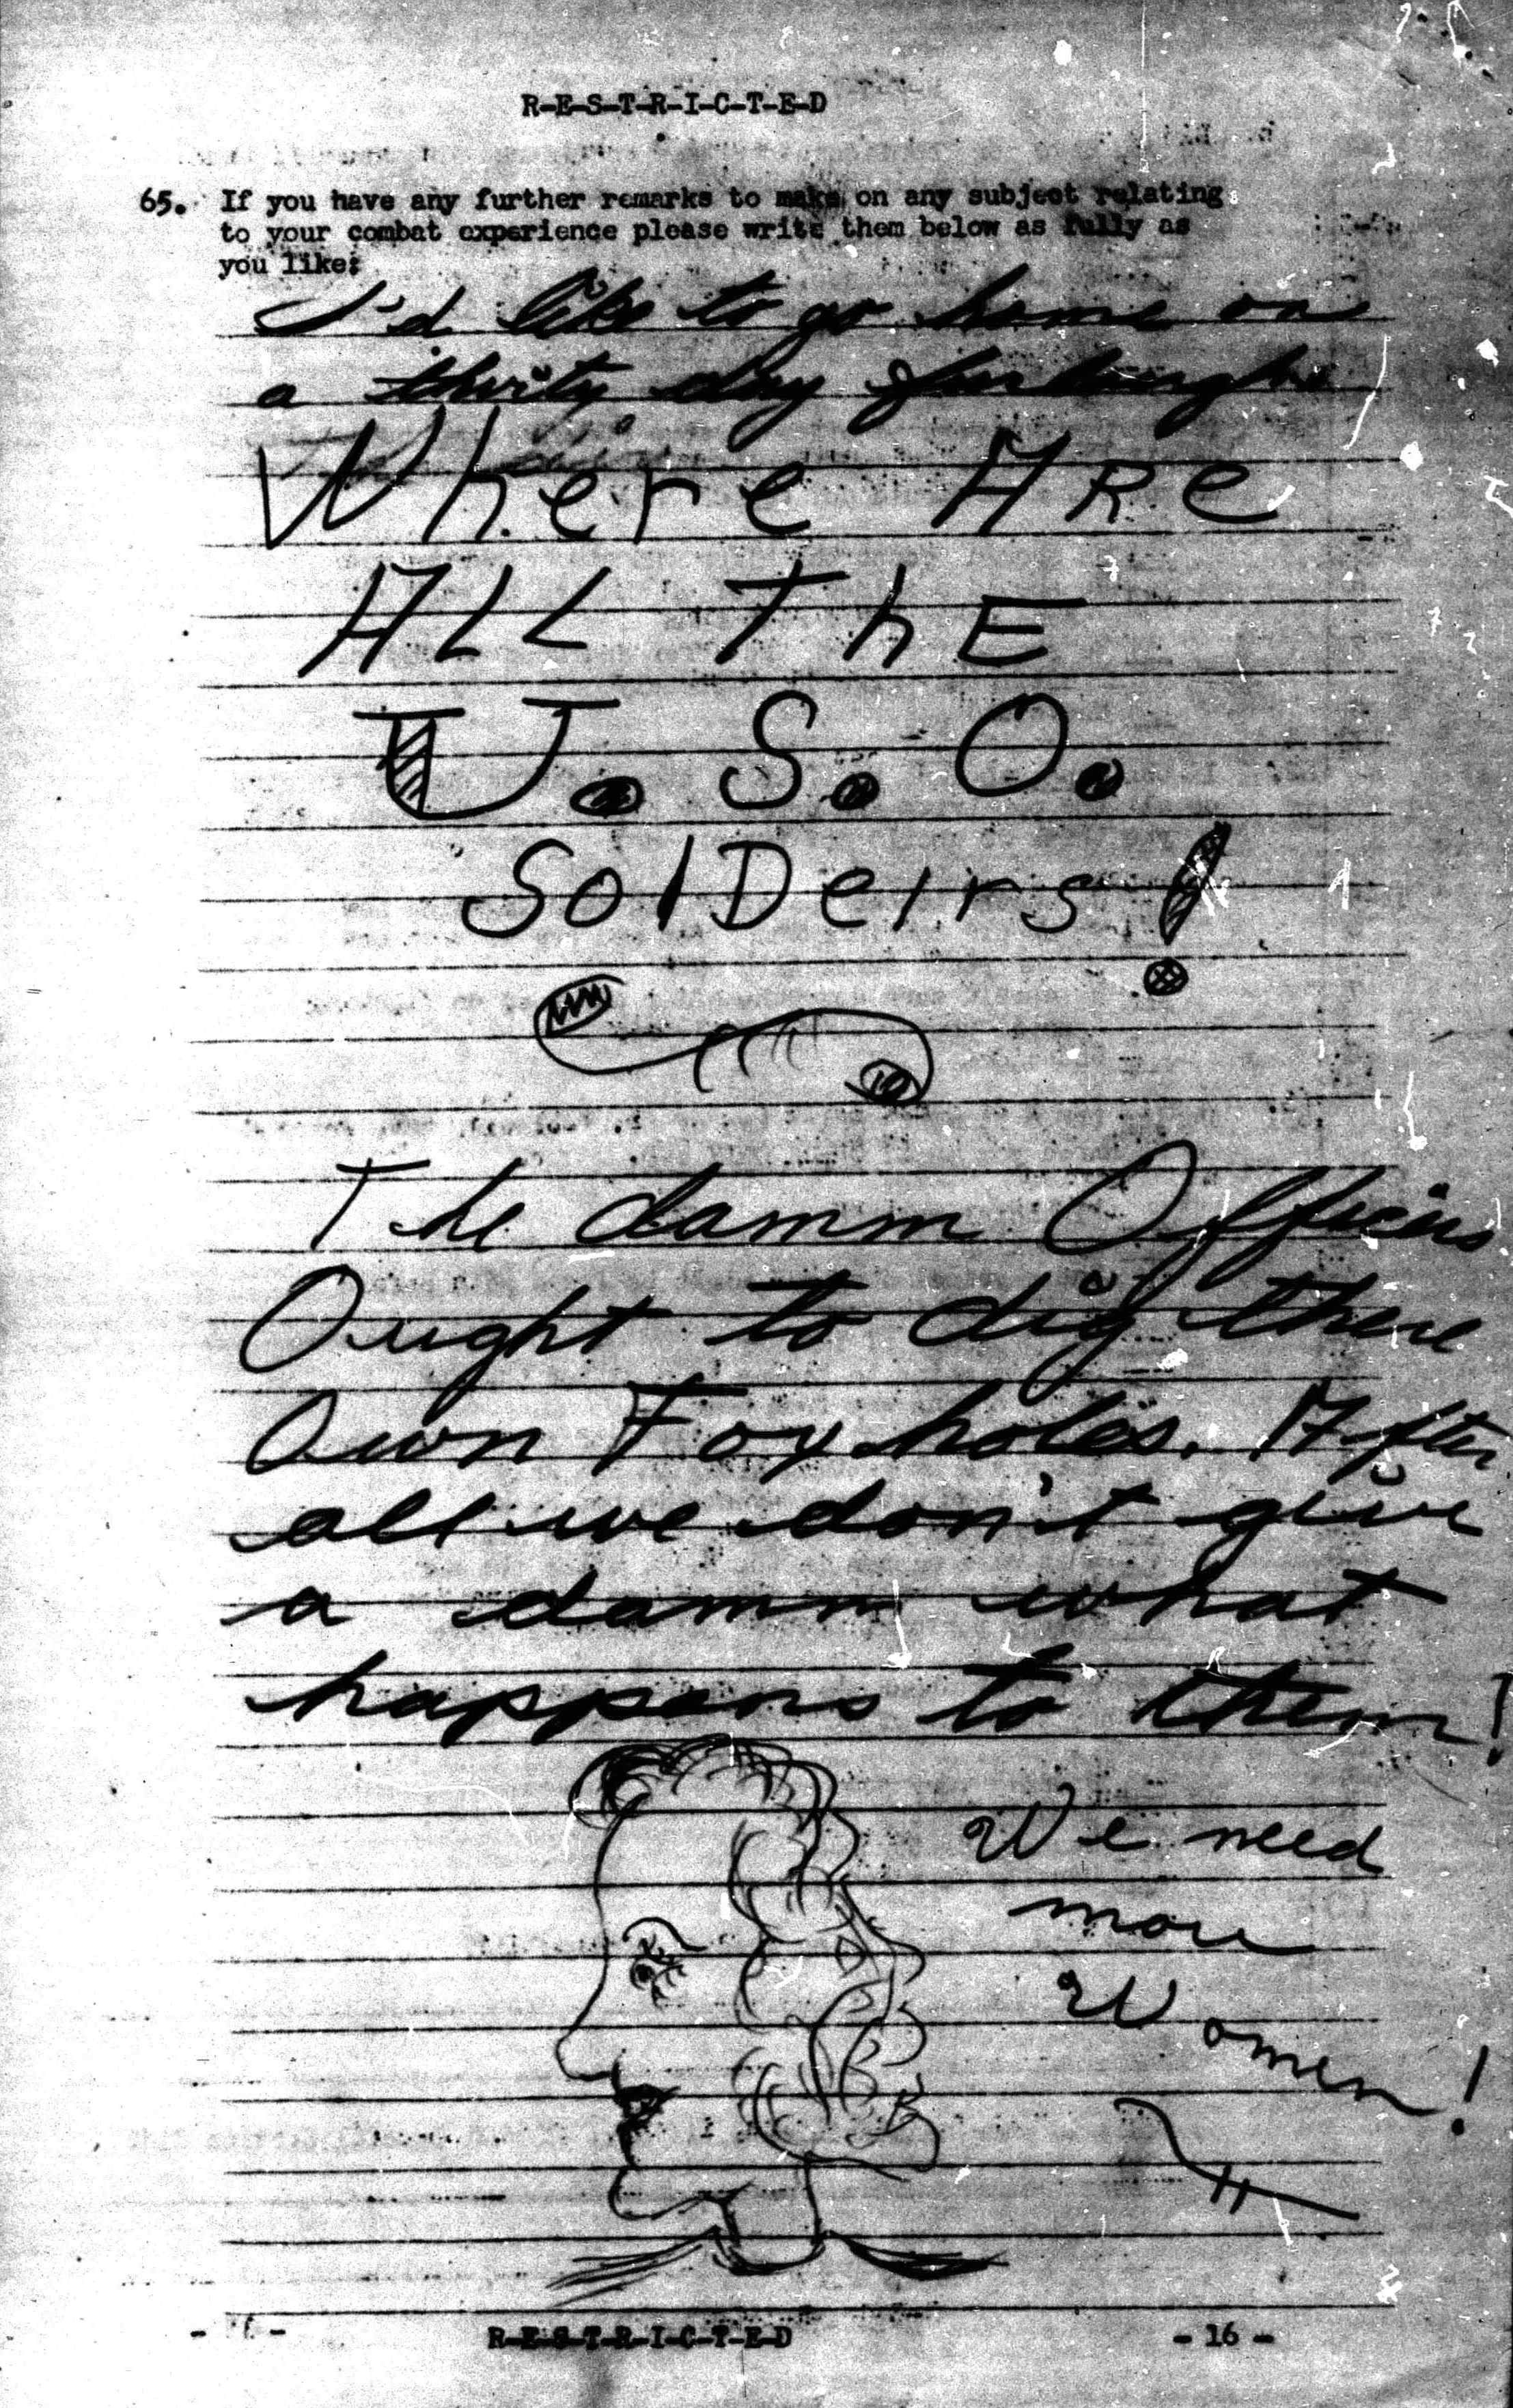 R-E-S-T-R-I-C-T-E-D
65. If you have any further remarks to make on any subject relating
to your combat experience please write them below as fully as
you like:
I'd like to go home on
a thirty day
Where ARe
ALL ThE
U. S. O.
SolDeirs!
The damm Officers
Ought to dig there
Own Foxholes. After
all we don't give
a damn what
happens to them!
We need
more
Women!
R-E-S-T-R-I-C-T-E-D
- 16 -